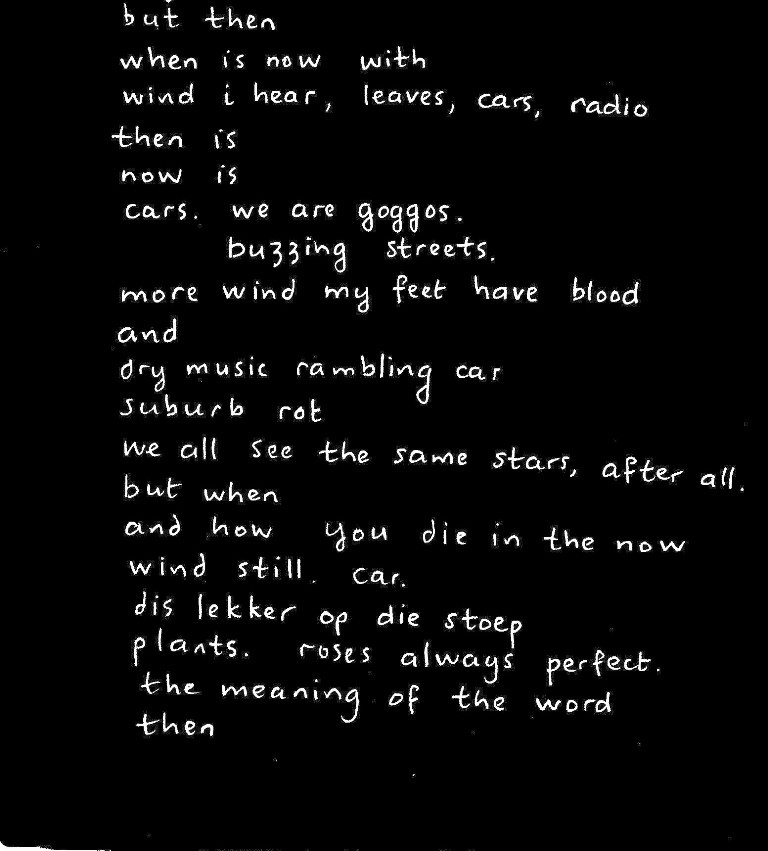 but then
when is now with
wind i hear, leaves, cars, radio
then is
now is
cars. we are goggos.
buzzing streets.
more wind my feet have blood
and
dry music rambling car
suburb rot
we all see the same stars, after all.
but when
and how you die in the now
wind still. car.
dis lekker op die stoep
plants. roses always perfect.
the meaning of the word
then